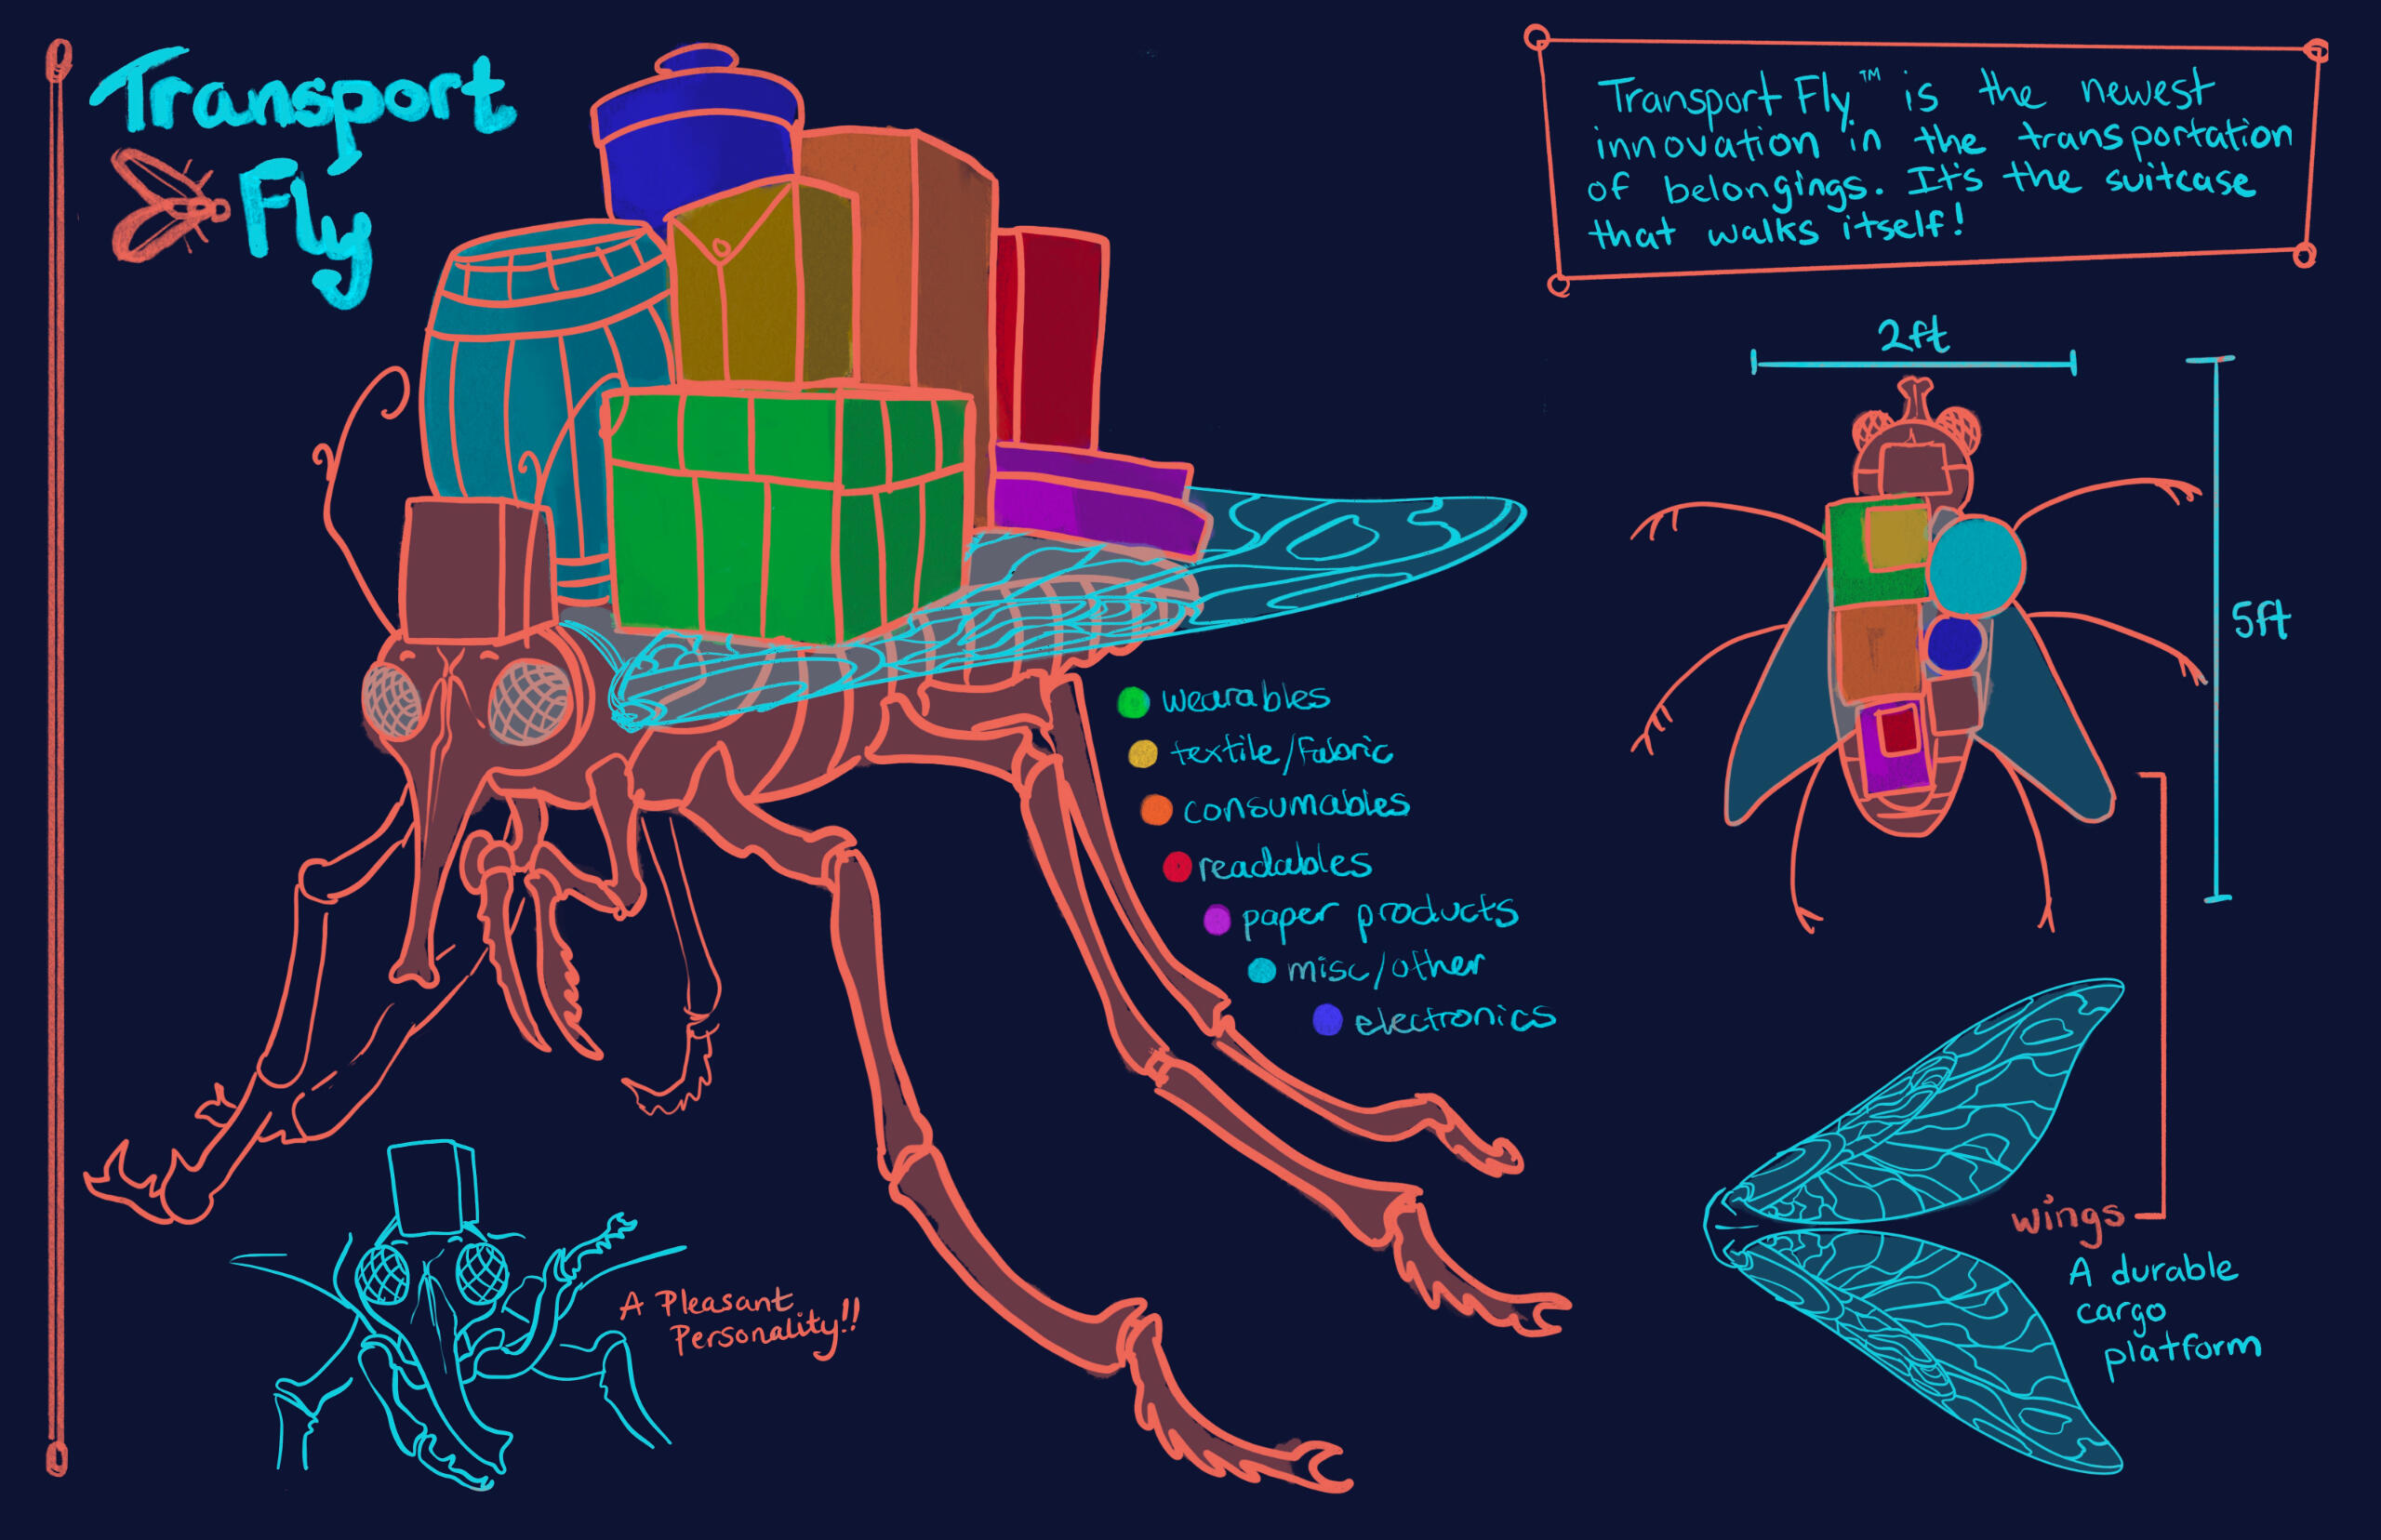 Transport
Fly
Transport Fly™ is the newest
innovation in the transportation
of belongings. It's the suitcase
that walks itself!
2ft
5ft
wearables
textile/fabric
consumables
readables
paper products
misc/other
electronics
wings
A durable
cargo
platform
A Pleasant
Personality!!